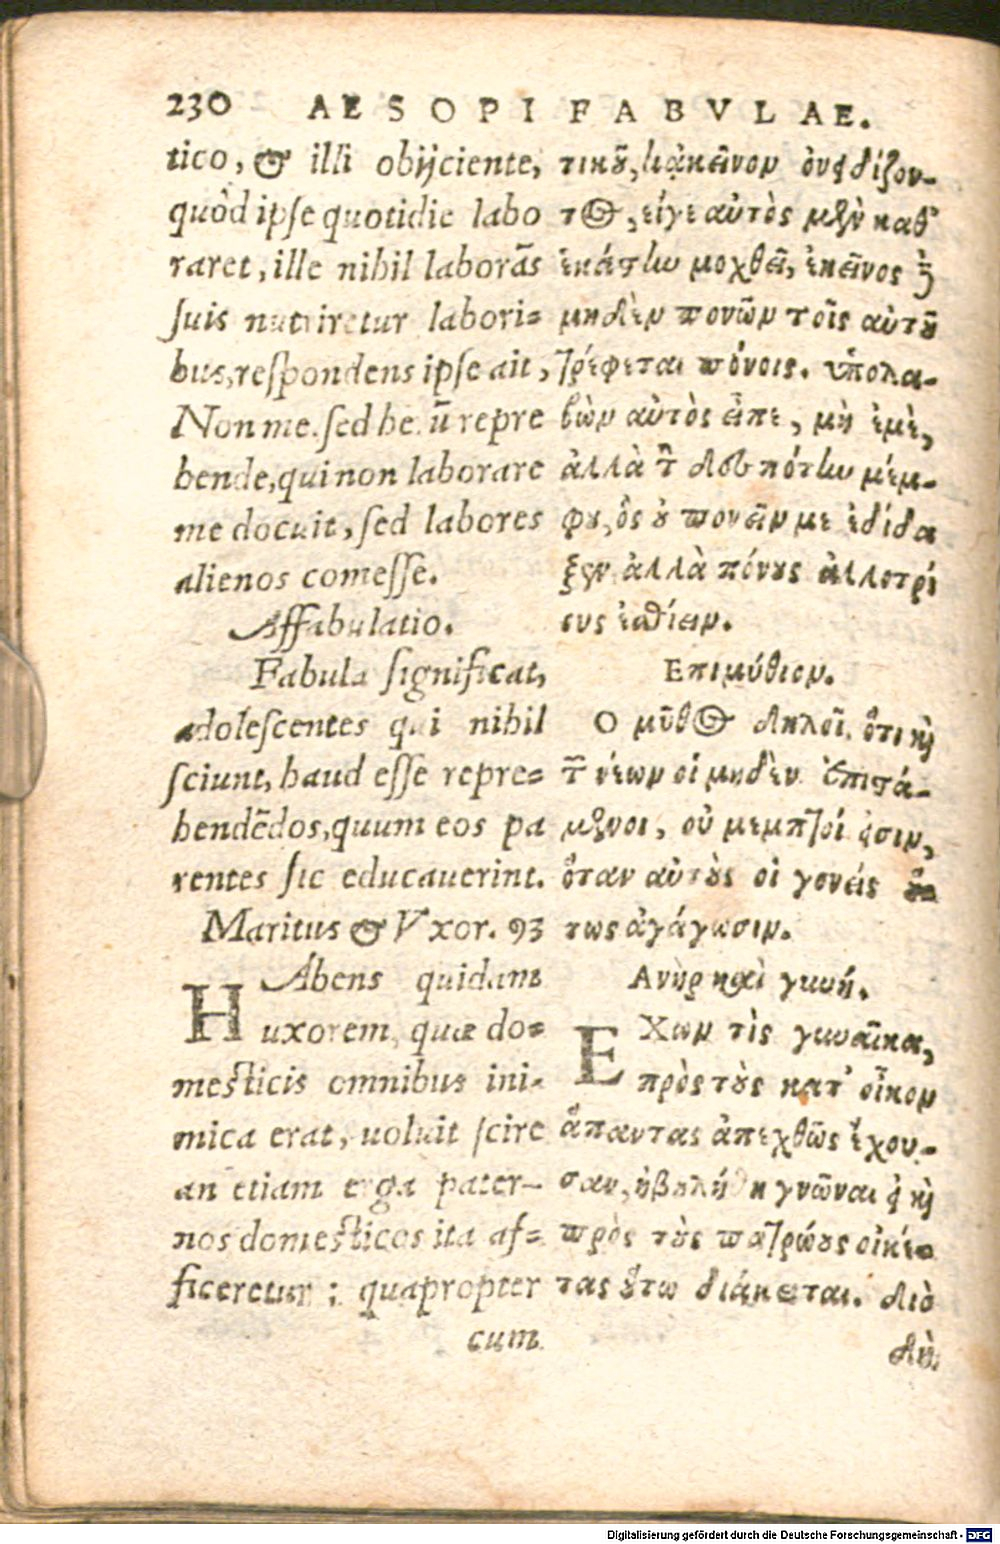 230 AESOPI FABVLAE.
tico, & illi obijciente,
quòd ipse quotidie labo
raret, ille nihil laborãs
suis nutriretur labori=
bus, respondens ipse ait,
Non me. sed he. ũ repre
hende, qui non laborare
me docuit, sed labores
alienos comesse.
Affabulatio.
Fabula significat,
adolescentes qui nihil
sciunt, haud esse repre=
hendẽdos, quum eos pa
rentes sic educauerint.
Maritus & Vxor. 93
HAbens quidam
uxorem, quæ do=
mesticis omnibus ini-
mica erat, uoluit scire
an etiam erga pater-
nos domesticos ita af=
ficeretur; quapropter
cum
τικοῦ, κἀκεῖνον ὀνειδίζον-
τος, εἴγε αὐτὸς μὲν καθ'
ἑκάστην μοχθεῖ, ἐκεῖνος δὲ
μηδὲν πονῶν τοῖς αὐτοῦ
τρέφεται πόνοις. ὑπολα-
βὼν αὐτὸς εἶπε, μὴ ἐμὲ,
ἀλλὰ τὸν δεσπότην μέμ-
φου, ὃς οὐ πονεῖν με ἐδίδα
ξεν ἀλλὰ πόνους ἀλλοτρί
ους ἐσθίειν.
Επιμύθιον.
Ο μῦθος δηλοῖ, ὅτι καὶ
τῶν νέων οἱ μηδὲν ἐπιστά-
μενοι, οὐ μεμπτοί εἰσιν,
ὅταν αὐτοὺς οἱ γονεῖς οὕ
τως ἀγάγωσιν.
Ανὴρ καὶ γυνή.
ΕΧων τὶς γυναῖκα,
πρὸς τοὺς κατ' οἶκον
ἅπαντας ἀπεχθῶς ἔχου-
σαν, ἠβουλήθη γνῶναι εἰ καὶ
πρὸς τοὺς πατρῴους οἰκέ-
τας οὕτω διάκειται. διὸ
δὴ
Digitalisierung gefördert durch die Deutsche Forschungsgemeinschaft - DFG